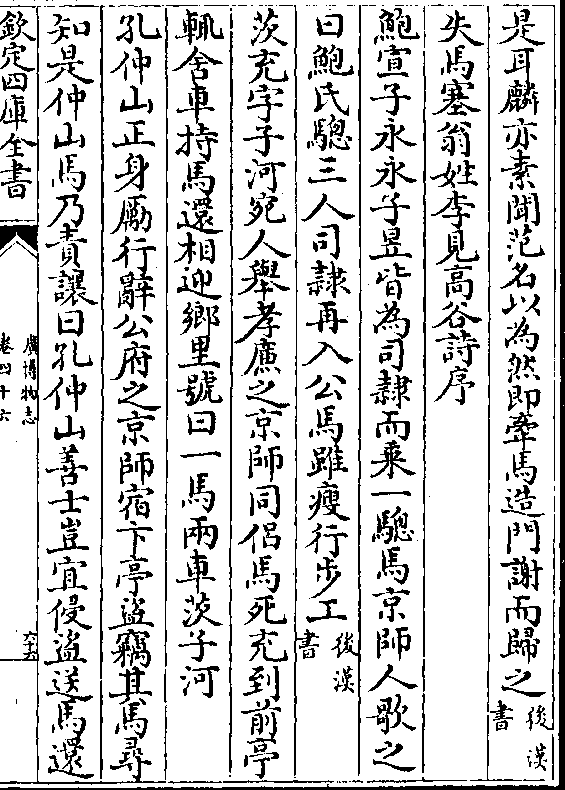 是耳麟亦素聞范名以為然即牽馬造門謝而歸之後漢書
失馬塞翁姓李見高谷詩序
鮑宣子永永子昱皆為司隸而乘一驄馬京師人歌之
曰鮑氏驄三人司隸再入公馬雖瘦行步工後漢書
茨充字子河宛人舉孝廉之京師同侶馬死充到前亭
輒舍車持馬還相迎鄉里號曰一馬兩車茨子河
孔仲山正身厲行辭公府之京師宿下亭盜竊其馬尋
知是仲山馬乃責讓曰孔仲山善士豈宜侵盜送馬還
欽定四庫全書
廣博物志
卷四十六
六十五